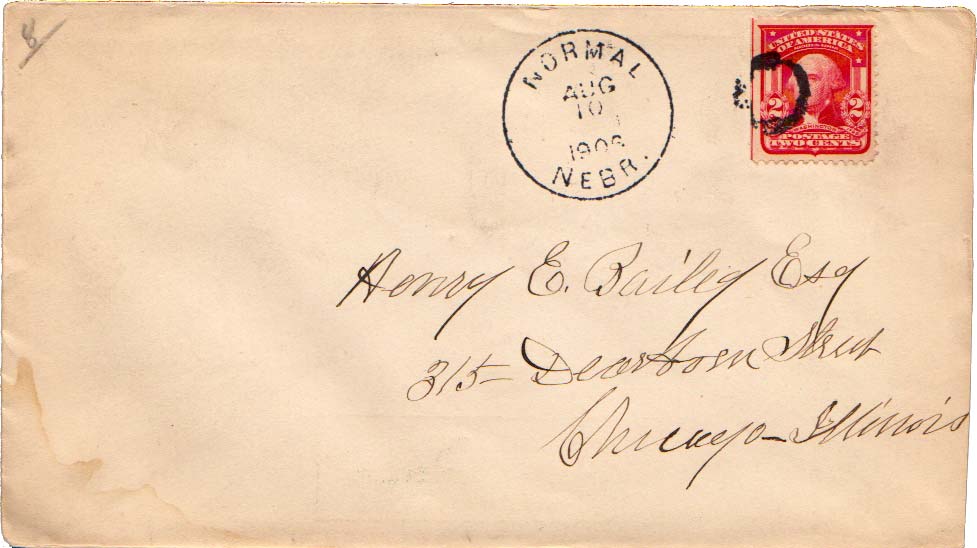 8
NORMAL
AUG
10
1906
NEBR.
UNITED STATES
OF AMERICA
SERIES 1902
2 2
WASHINGTON
POSTAGE
TWO CENTS
Henry E. Bailey Esq
315 - Dearborn Street
Chicago - Illinois